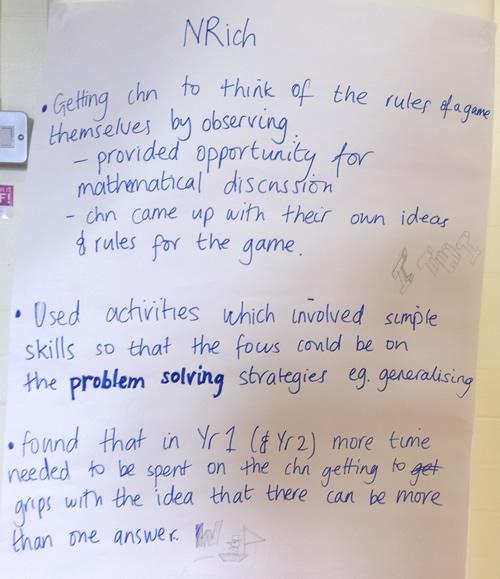 NRich
• Getting chn to think of the rules of a game
themselves by observing.
– provided opportunity for
mathematical discussion
- chn came up with their own ideas
& rules for the game.
• Used activities which involved simple
skills so that the focus could be on
the problem solving strategies eg. generalising
• found that in Yr 1 (& Yr 2) more time
needed to be spent on the chn getting to get
grips with the idea that there can be more
than one answer.